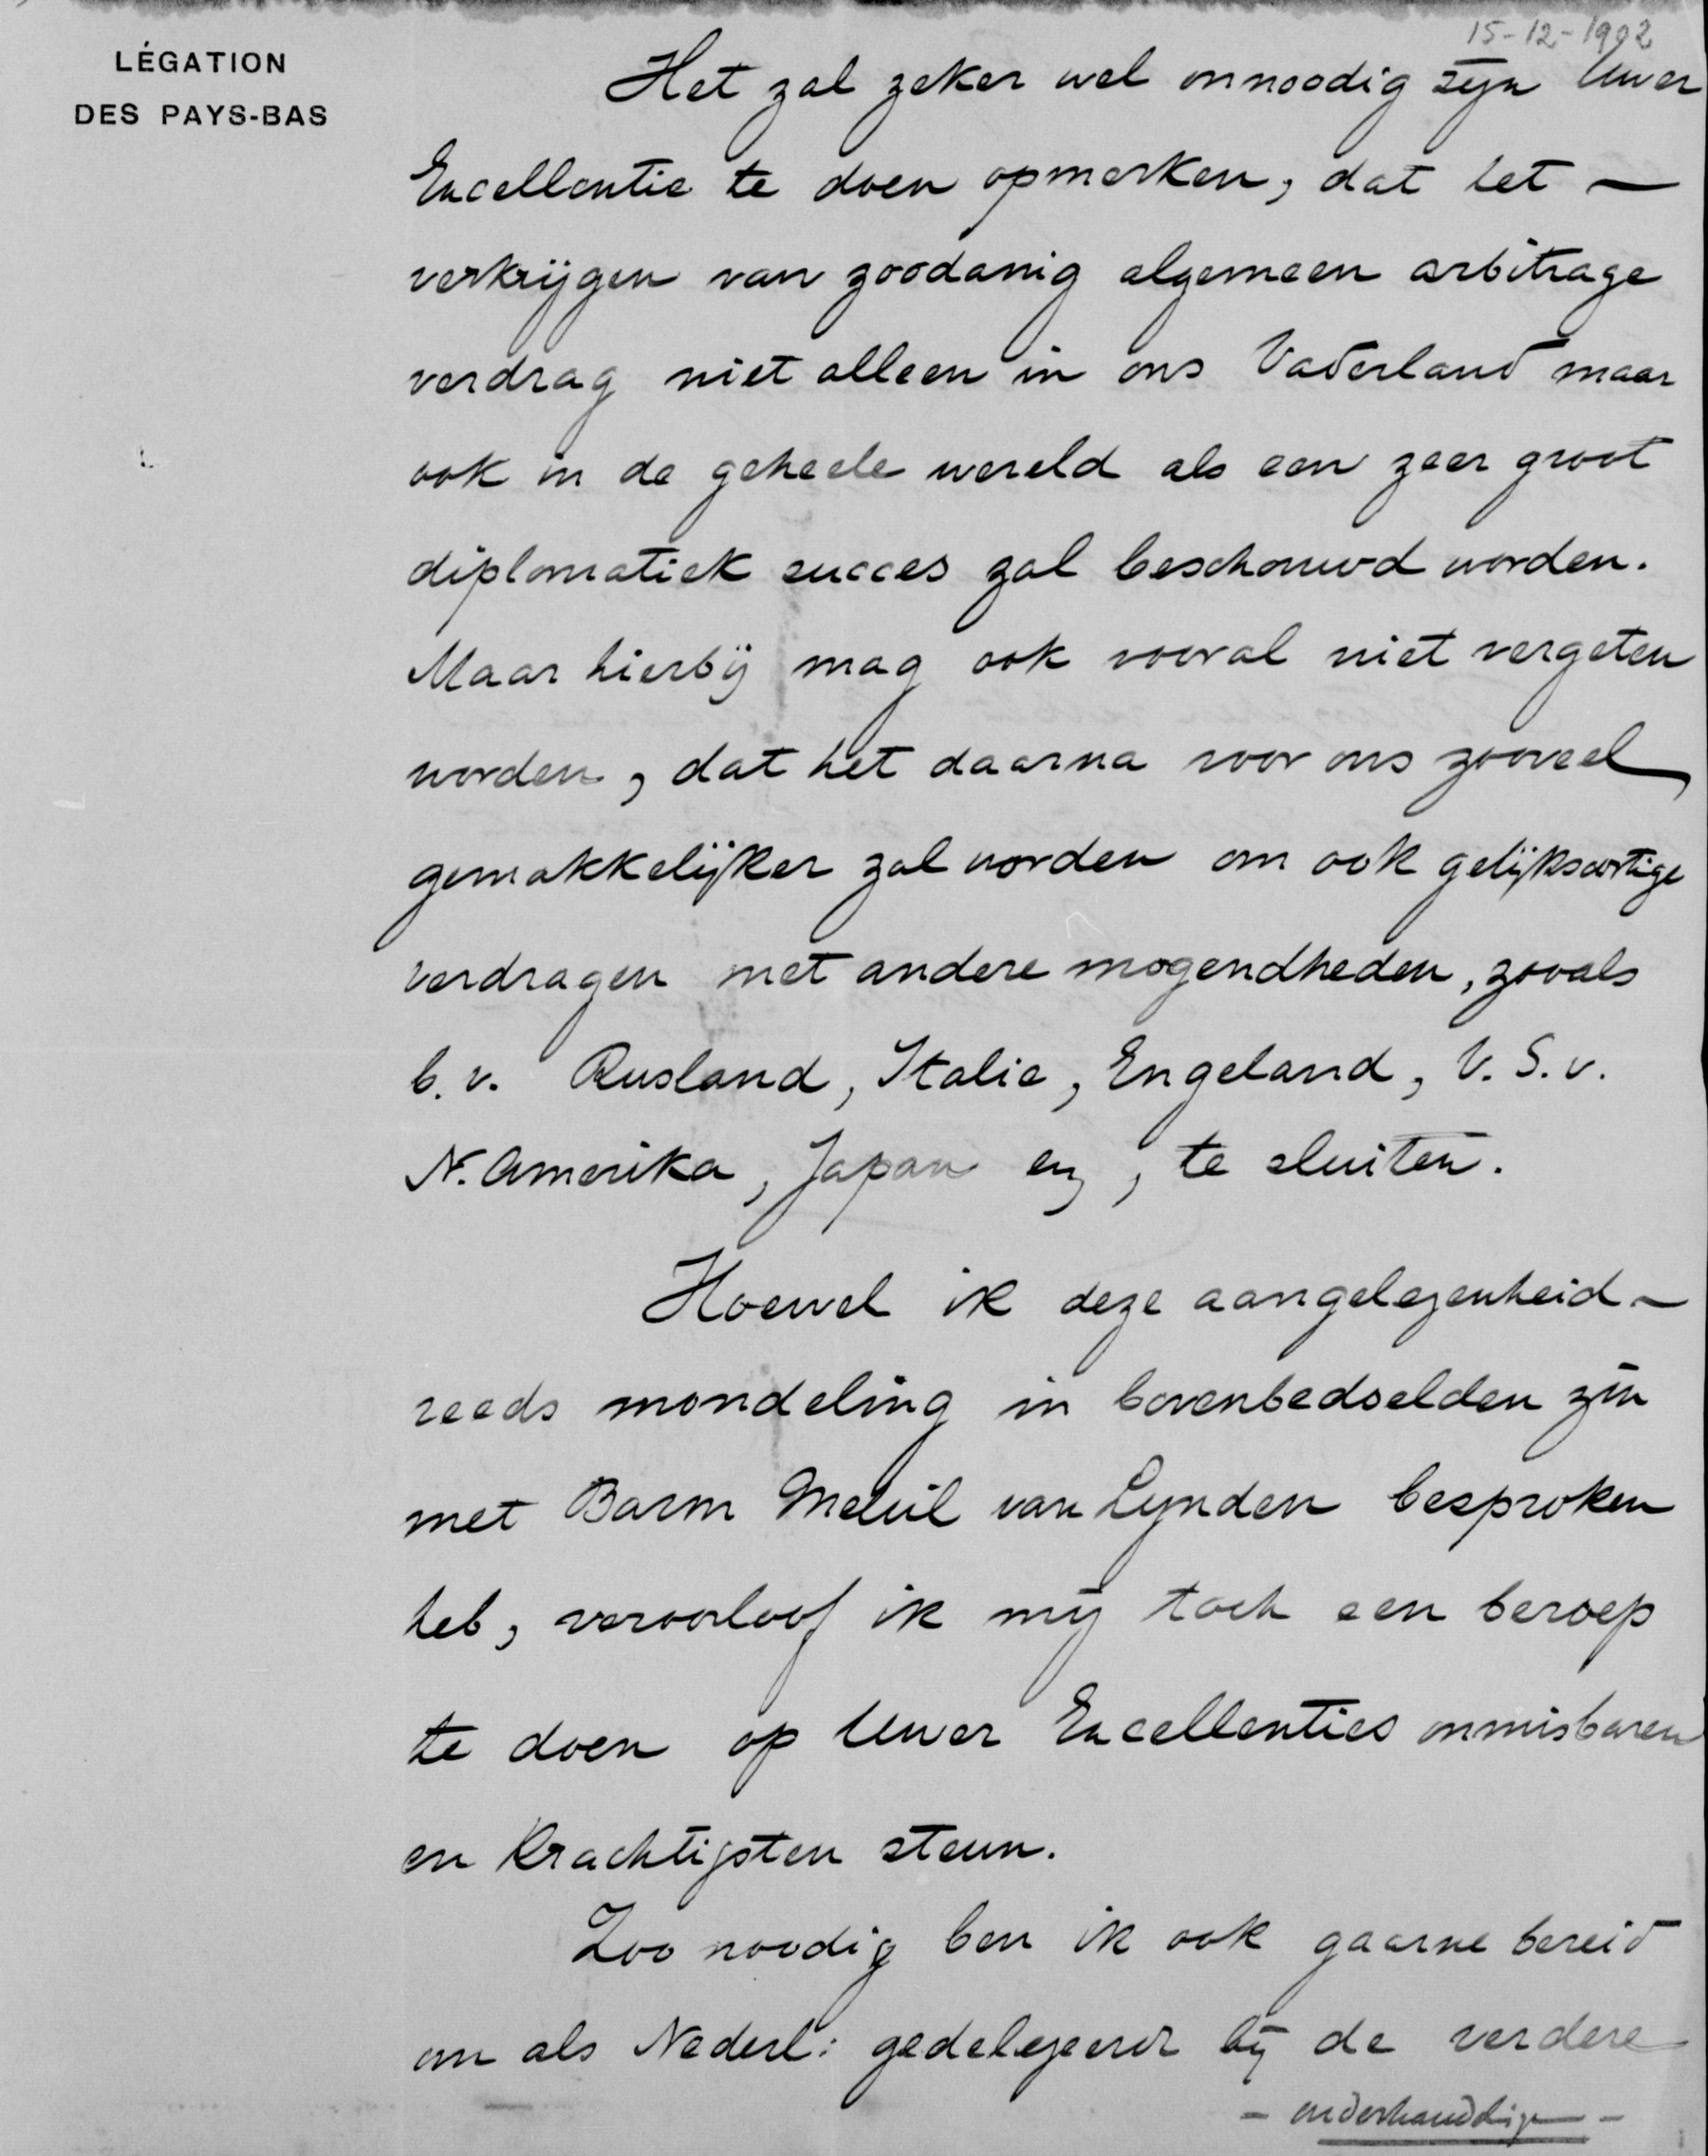 15-12-1902
LÉGATION
DES PAYS-BAS
Het zal zeker wel onnoodig zijn Uwer
Excellentie te doen opmerken, dat het —
verkrijgen van zoodanig algemeen arbitrage
verdrag niet alleen in ons Vaderland maar
ook in de geheele wereld als een zeer groot
diplomatiek succes zal beschouwd worden.
Maar hierbij mag ook vooral niet vergeten
worden, dat het daarna voor ons zooveel
gemakkelijker zal worden om ook gelijksoortige
verdragen met andere mogendheden, zooals
b.v. Rusland, Italie, Engeland, V. S. v.
N. Amerika, Japan enz, te sluiten.
Hoewel ik deze aangelegenheid —
reeds mondeling in bovenbedoelden zin
met Baron Melvil van Lynden besproken
heb, veroorloof ik mij toch een beroep
te doen op Uwer Excellenties onmisbaren
en krachtigsten steun.
Zoo noodig ben ik ook gaarne bereid
om als Nederl: gedelegeerde bij de verdere